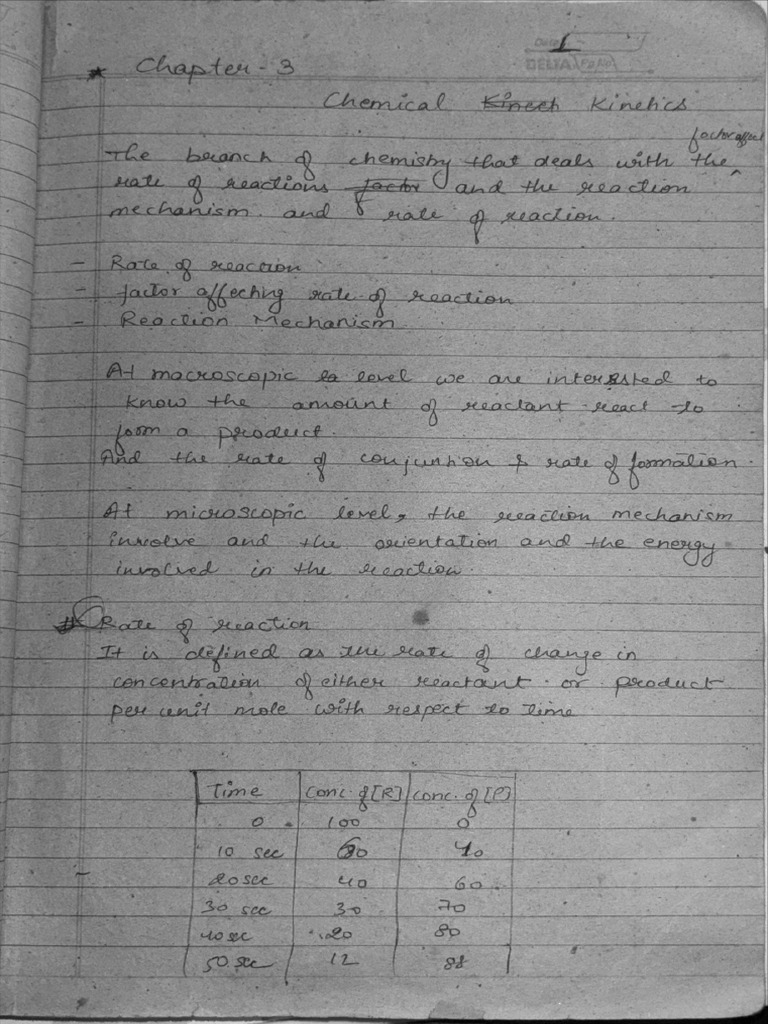 1
DELTA
Chapter - 3
Chemical Kinetics
factor affect
The branch of chemistry that deals with the ^
rate of reactions factor and the reaction
mechanism. and rate of reaction.
- Rate of reaction
- factor affecting rate of reaction
- Reaction Mechanism
At macroscopic level we are interested to
know the amount of reactant react to
form a product.
And the rate of conjuntion & rate of formation.
At microscopic level, the reaction mechanism
involve and the orientation and the energy
involved in the reaction.
# Rate of reaction
It is defined as the rate of change in
concentration of either reactant or product
per unit mole with respect to time
Time Conc. of [R] conc. of [P]
0 100 0
10 sec 60 40
20 sec 40 60
30 sec 30 70
40 sec 20 80
50 sec 12 88